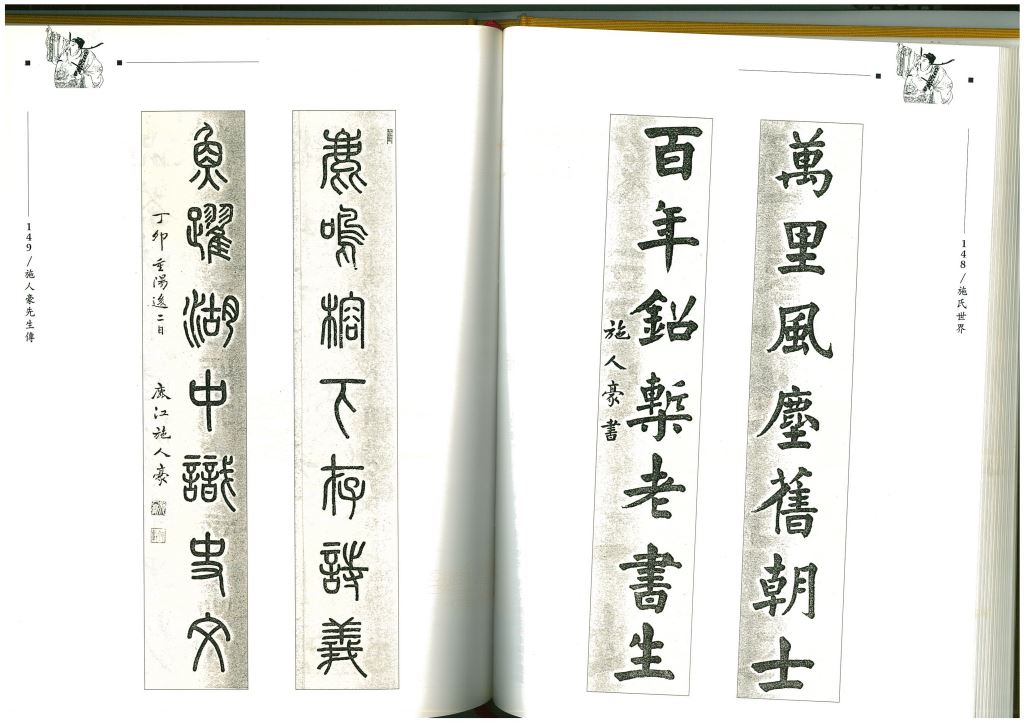 148/施氏世界
萬里風塵舊朝士
百年鉛槧老書生
施人豪書
鹿鳴榕下存詩義
魚躍湖中識史文
丁卯重陽後二日 鹿江施人豪
149/施人豪先生傳